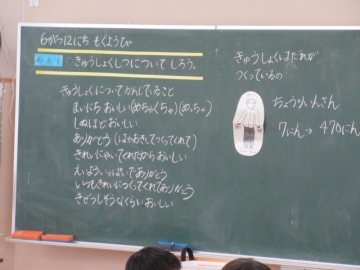 6がつ12にち もくようび
めあて
きゅうしょくしつについて しろう。
きゅうしょくについて かんじていること
まいにち おいしい(めちゃくちゃ)(めっちゃ)
しぬほどおいしい
ありがとう(はやおきしてつくってくれて)
きれいに やいてくれたからおいしい
えいよういっぱいで ありがとう
いつもきれいにつくってくれてありがとう
きぜつしそうなくらい おいしい
きゅうしょくはだれが
つくっているの
ちょうりいんさん
7にん→ 470にん